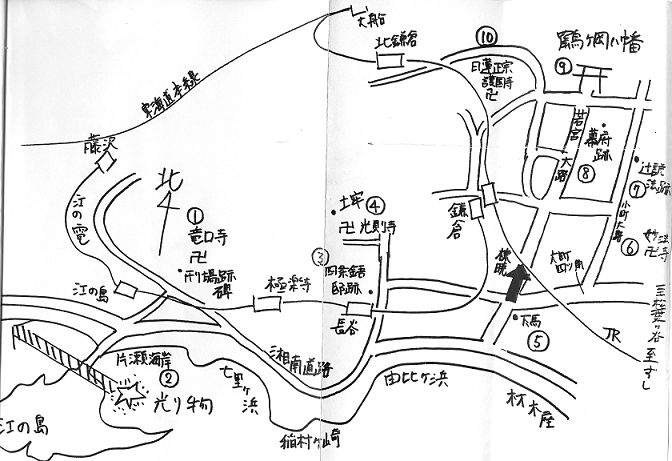 大船
北鎌倉
⑩
日蓮正宗
護国寺
卍
鶴ヶ岡八幡
⑨
東海道本線
藤沢
北
江の電
①
竜口寺
卍
刑場跡
碑
土牢
④
卍光則寺
③
四条金吾
邸跡
鎌倉
若宮
大路
幕府
跡
⑧
辻説
法跡
⑦
小町大路
⑥
卍
大町
四ツ角
江の島
極楽寺
長谷
大鳥
⑤
JR
片瀬海岸
②
光り物
江の島
湘南道路
七里ヶ浜
稲村ヶ崎
由比ヶ浜
材木座